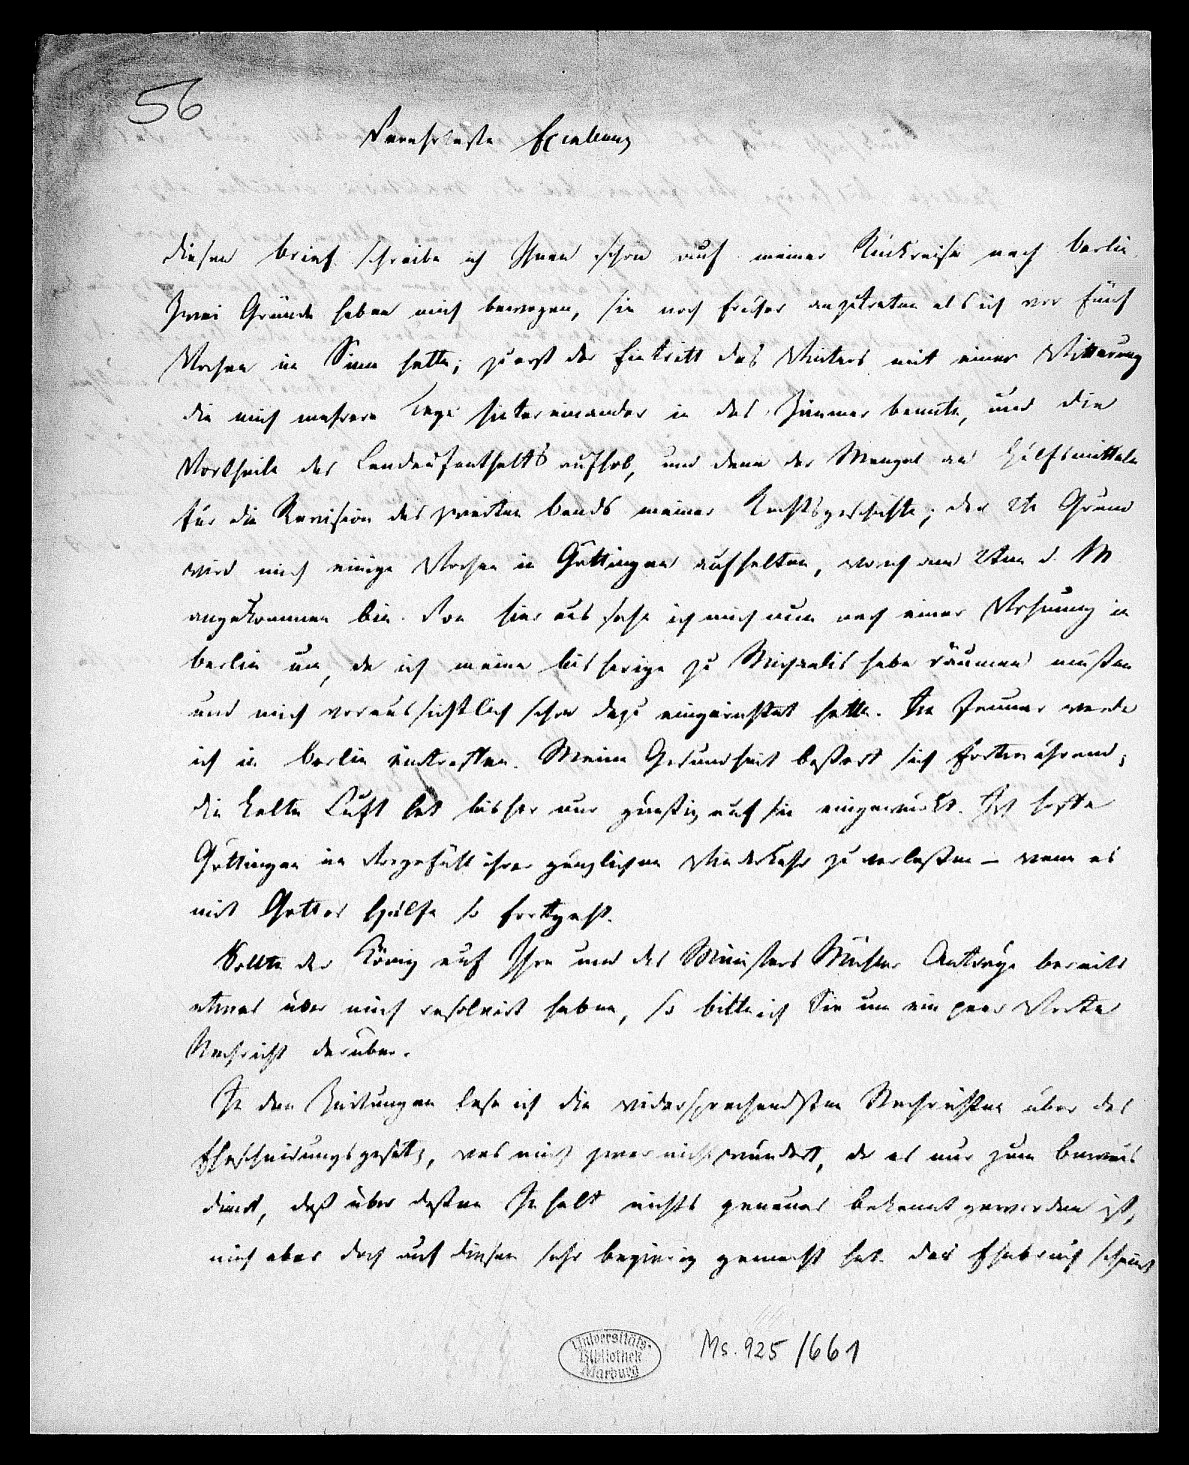 56
Verehrteste Excellenz
diesen Brief schreibe ich Ihnen schon auf meiner Rückreise nach Berlin.
Zwei Gründe haben mich bewogen, sie noch früher anzutreten als ich vor fünf
Wochen im Sinn hatte; zuerst der Eintritt des Winters mit einer Witterung
die mich mehrere Tage hintereinander in das Zimmer bannte, und die
Vortheile des Landaufenthalts aufhob, und dann der Mangel an Hülfsmitteln
für die Revision des zweiten Bands meiner Rechtsgeschichte; der 2te Grund
wird mich einige Wochen in Göttingen aufhalten, wo ich am 2ten d M
angekommen bin. Von hier aus sehe ich mich nun nach einer Wohnung in
Berlin um, da ich meine bisherige zu Michaelis habe räumen müßen
und mich voraussichtlich schon dazu eingerichtet hatte. Im Januar werde
ich in Berlin eintreffen. Meine Gesundheit beßert sich fortwährend;
die kalte Luft hat bisher nur günstig auf sie eingewirkt. Ich hoffe
Göttingen im Vorgefühl ihrer gänzlichen Wiederkehr zu verlaßen – wenn es
mit Gottes Hülfe so fortgeht.
Sollte der König auf Ihre und des Ministers Mühler Anträge bereits
etwas über mich resolvirt haben, so bitte ich Sie um ein paar Worte
Nachricht darüber.
In den Zeitungen lese ich die widersprechendsten Nachrichten über das
Ehescheidungsgesetz, was mich zwar nicht wundert, da es nur zum Beweis
dient, daß über deßen Inhalt nichts genaues bekannt geworden ist,
mich aber doch auf diesen sehr begierig gemacht hat. Das Ehebruch scheint
Universitäts-
Bibliothek
Marburg
Ms. 925/661